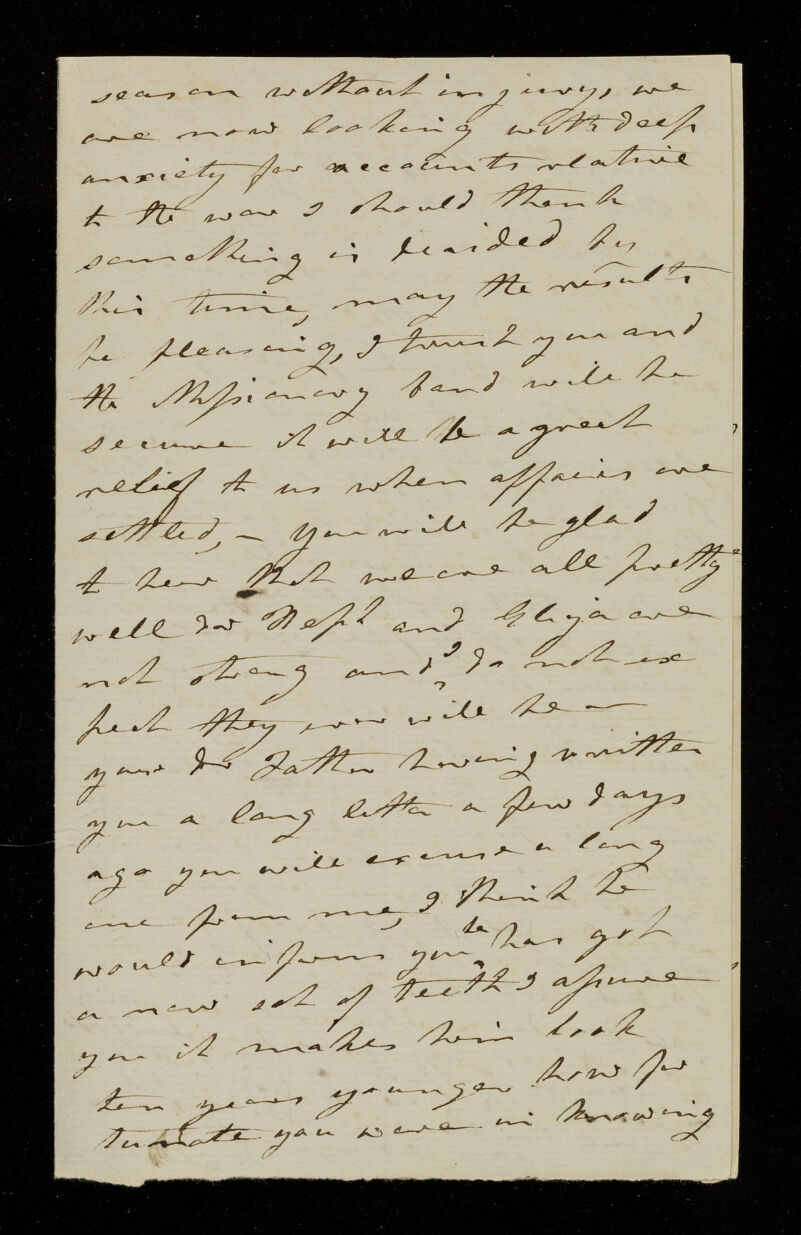 season without injury, we
are now looking with deep
anxiety for accounts relative
to the war I should think
something is decided by
this time, may the results
be pleasing, I trust you and
the Missionary band will be
secure it will be a great
relief to us when affairs are
settled, – you will be glad
to hear that we are all pretty
well dr Hepb and Eliza are
not strong and I do not ex
pect they ever will be –
your dr Father having written
you a long letter a few days
ago you will excuse a long
one from me, I think he
would inform you he has got
a new set of teeth I assure
you it makes him look
ten years younger how for
tunate you were in knowing